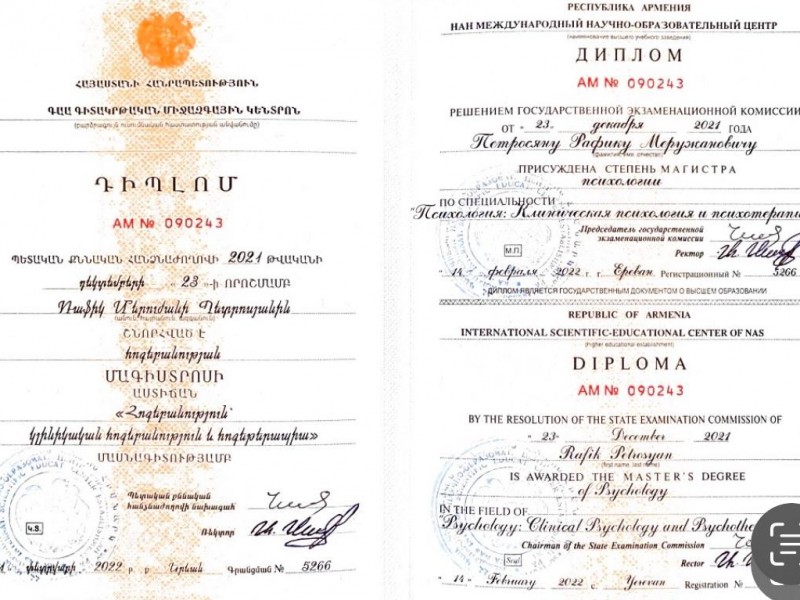 ՀԱՅԱՍՏԱՆԻ ՀԱՆՐԱՊԵՏՈՒԹՅՈՒՆ
ԳԱԱ ԳԻՏԱԿՐԹԱԿԱՆ ՄԻՋԱԶԳԱՅԻՆ ԿԵՆՏՐՈՆ
(բարձրագույն ուսումնական հաստատության անվանումը)
ԴԻՊԼՈՄ
AM № 090243
ՊԵՏԱԿԱՆ ՔՆՆԱԿԱՆ ՀԱՆՁՆԱԺՈՂՈՎԻ 2021 ԹՎԱԿԱՆԻ
դեկտեմբերի « 23 »-Ի ՈՐՈՇՄԱՄԲ
Ռաֆիկ Մերուժանի Պետրոսյանին
(անուն, հայրանուն, ազգանուն)
ՇՆՈՐՀՎԱԾ Է
հոգեբանության
ՄԱԳԻՍՏՐՈՍԻ
ԱՍՏԻՃԱՆ
«Հոգեբանություն՝
կլինիկական հոգեբանություն և հոգեթերապիա»
ՄԱՍՆԱԳԻՏՈՒԹՅԱՄԲ
Պետական քննական
հանձնաժողովի նախագահ
Ռեկտոր
Կ.Տ.
փետրվարի 2022 թ. ք. Երևան Գրանցման № 5266
РЕСПУБЛИКА АРМЕНИЯ
НАН МЕЖДУНАРОДНЫЙ НАУЧНО-ОБРАЗОВАТЕЛЬНЫЙ ЦЕНТР
(наименование высшего учебного заведения)
ДИПЛОМ
AM № 090243
РЕШЕНИЕМ ГОСУДАРСТВЕННОЙ ЭКЗАМЕНАЦИОННОЙ КОМИССИИ
ОТ " 23 " декабря 2021 ГОДА
Петросяну Рафику Меружановичу
(фамилия, имя, отчество)
ПРИСУЖДЕНА СТЕПЕНЬ МАГИСТРА
психологии
ПО СПЕЦИАЛЬНОСТИ
"Психология: Клиническая психология и психотерапи
Председатель государственной
экзаменационной комиссии
М.П.
Ректор
" 14 " февраля 2022 г. г. Ереван Регистрационный № 5266
ДИПЛОМ ЯВЛЯЕТСЯ ГОСУДАРСТВЕННЫМ ДОКУМЕНТОМ О ВЫСШЕМ ОБРАЗОВАНИИ
REPUBLIC OF ARMENIA
INTERNATIONAL SCIENTIFIC-EDUCATIONAL CENTER OF NAS
(higher educational establishment)
DIPLOMA
AM № 090243
BY THE RESOLUTION OF THE STATE EXAMINATION COMMISSION OF
" 23 " December 2021
Rafik Petrosyan
(first name, last name)
IS AWARDED THE MASTER'S DEGREE
of Psychology
IN THE FIELD OF
"Psychology: Clinical Psychology and Psychothe
Chairman of the State Examination Commission
Rector
Seal
" 14 " February 2022 c. Yerevan Registration №